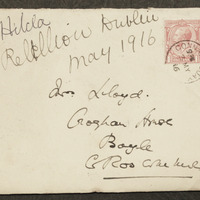 Hilda
Rebellion Dublin
May 1916
Mrs Lloyd.
Croghan House
Boyle
Co Roscommon